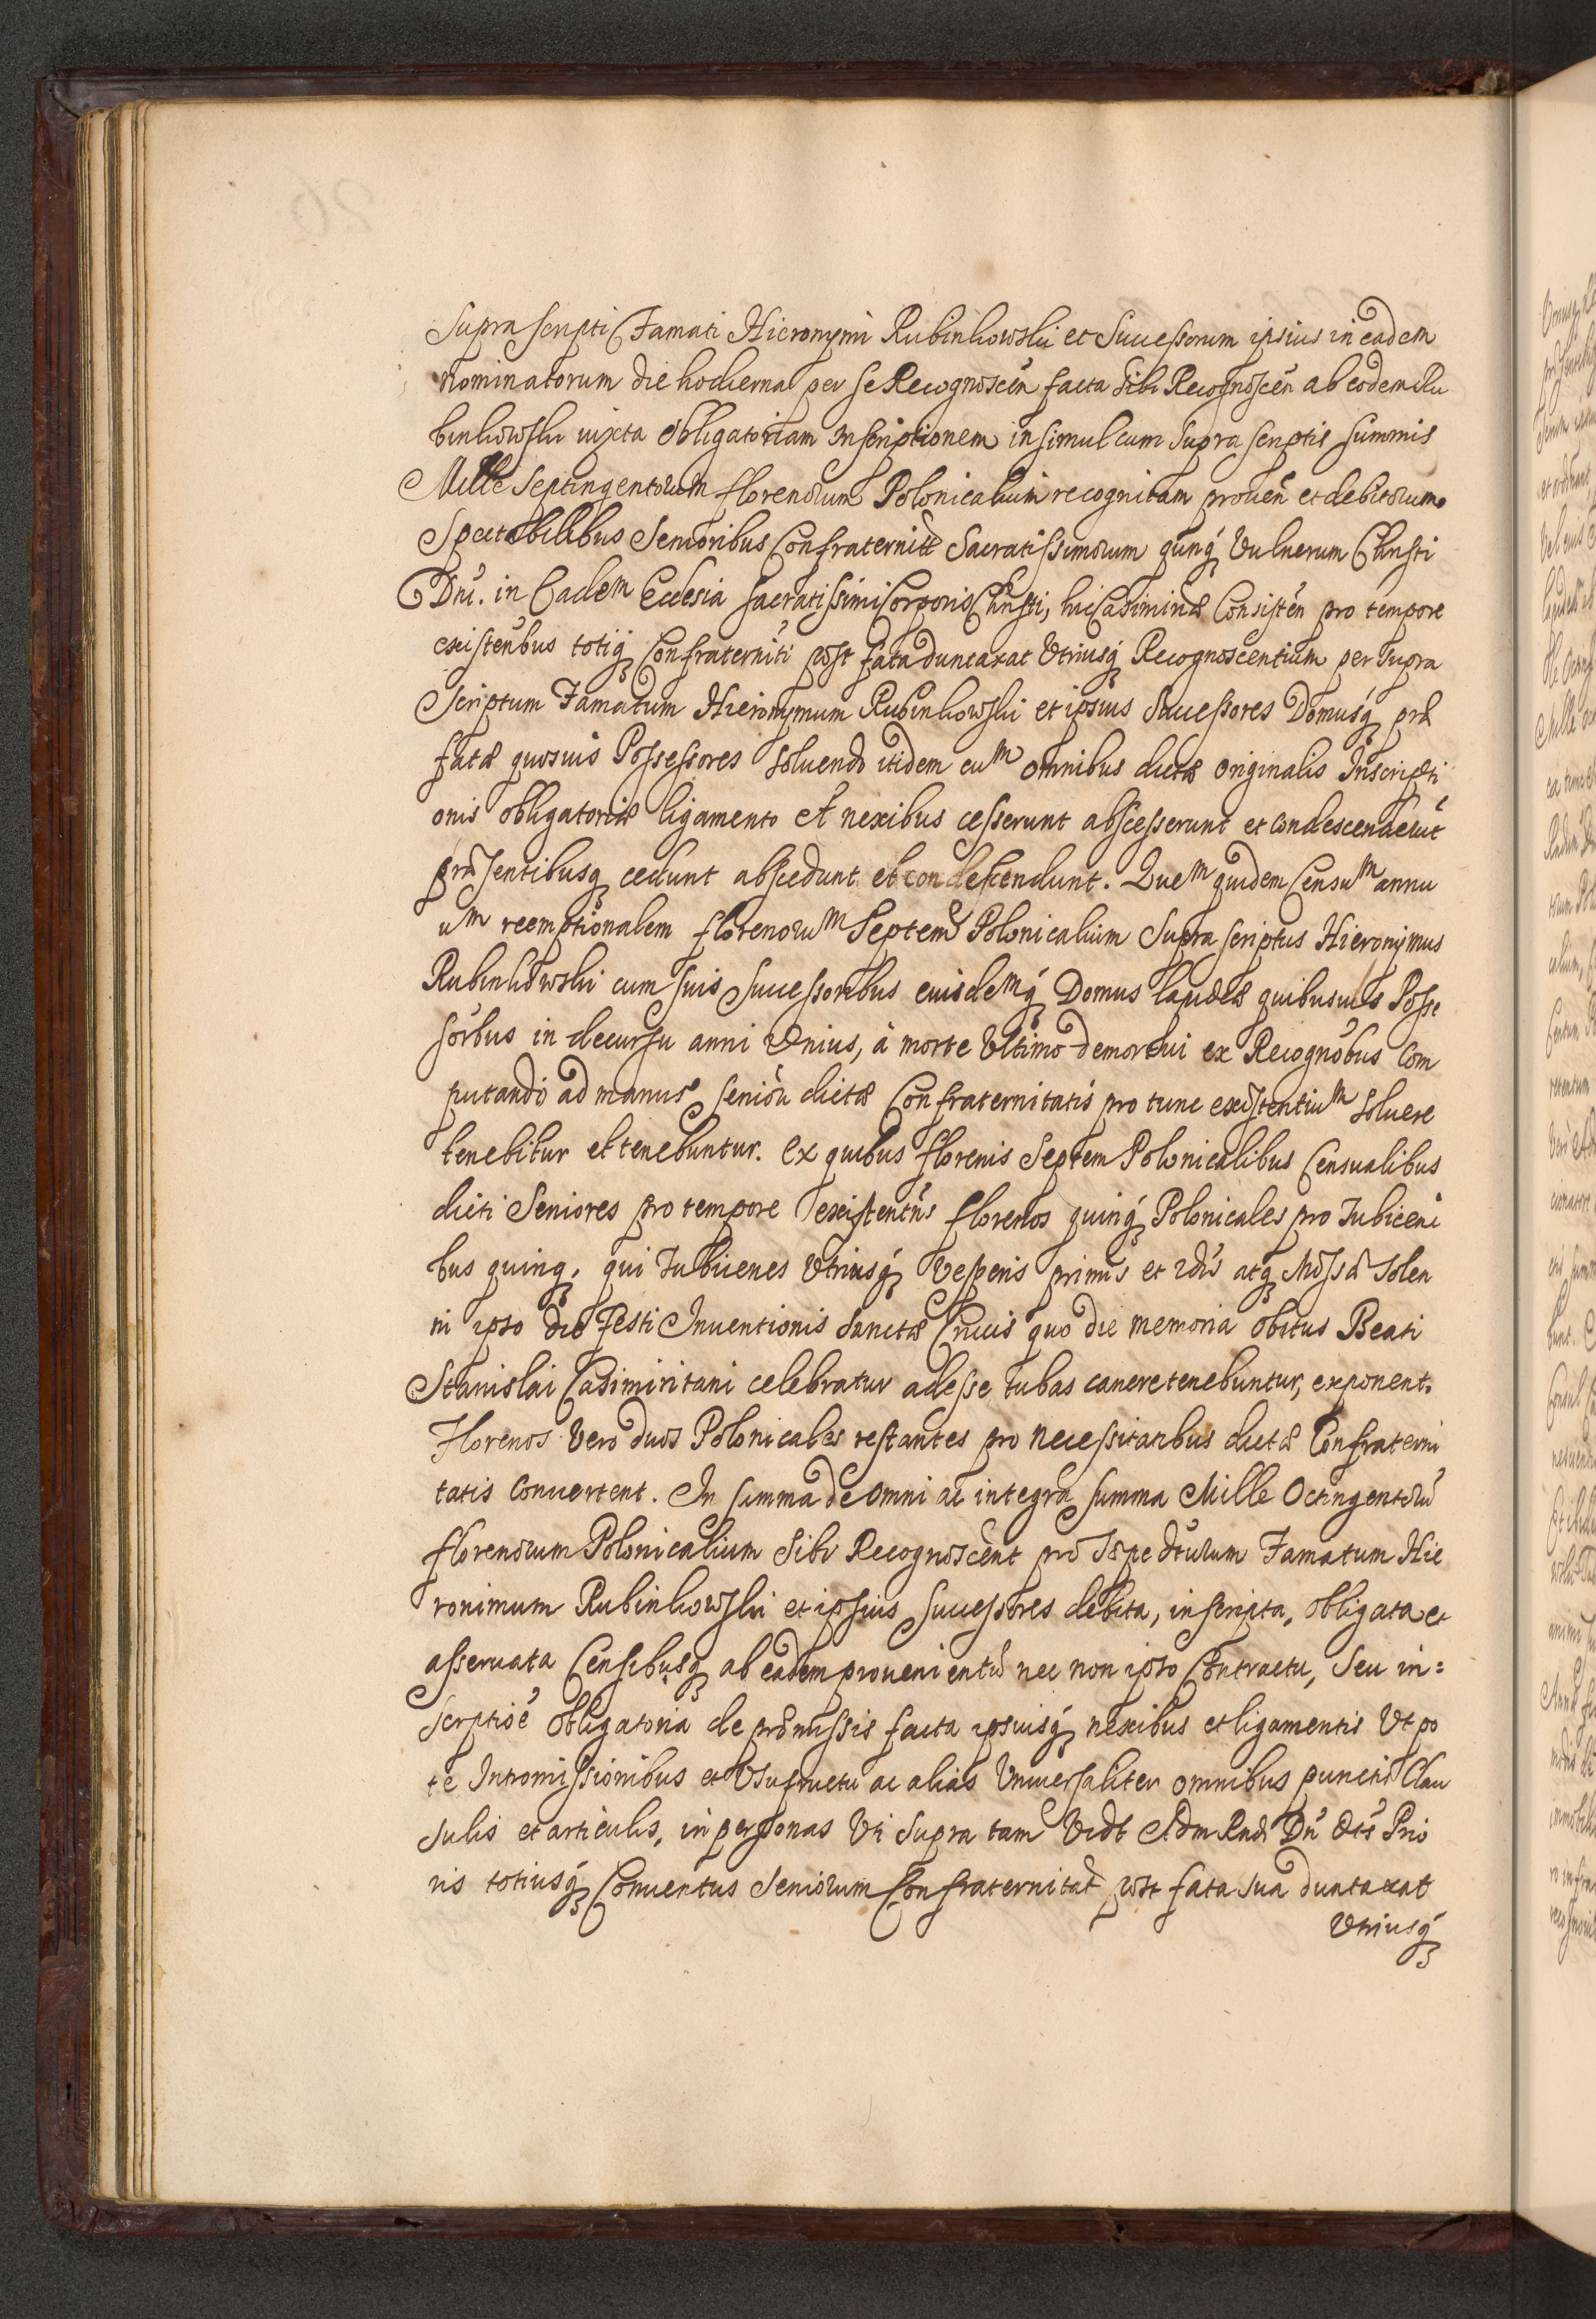 Supra scripti Famati Hieronymi Rubinkowski et Successorum ipsius in eadem
nominatorum die hodierna per se Recognoscen̄ facta sibi Recognoscen̄ ab eodem Ru
binkowski iuxta obligatoriam inscriptionem in simul cum supra scriptis summis
Mille Septingentorum florenorum Polonicalium recognitam prouen̄ et debitorum
Spectabilibus Senioribus Confraternitt Sacratissimorum quinq́ Vulnerum Christi
Dn̄i. in Eadem Ecclesia sacratissimi Corporis Christi, hic Casimiriæ Consisten̄ pro tempore
existen̄bus totiq́ Confraternit̄i post fata duntaxat Vtriusq́ Recognoscentium per supra
Scriptum Famatum Hieronymum Rubinkowski et ipsius Successores Domusq́ præ
fatæ quosuis Possessores soluendo itidem cum omnibus dictæ originalis Inscripti
onis obligatoriæ ligamento et nexibus cesserunt abscesserunt et condescenderūt
præsentibusq́ cedunt abscedunt et condescendunt. Quem quidem Censum annu
um reemptionalem florenorum Septem Polonicalium Supra scriptus Hieronymus
Rubinkowski cum suis Successoribus eiusdemq́ Domus lapideæ quibusuis Posse
sōrbus in decursu anni Vnius, à morte Vltimo demortui ex Recognōbus Com
putando ad manus seniōu dictæ Confraternitatis pro tunc existentium soluere
tenebitur et tenebuntur. Ex quibus florenis Septem Polonicalibus Censualibus
dicti Seniores pro tempore existentēs florenos quinq́ Polonicales pro Tubiceni
bus quinq́, qui Tubicenes Vtriusq́ Vesperis primis et 2dis atq́ Missæ Solen
ni ipso die Festi Inuentionis Sanctæ Crucis quo die memoria obitus Beati
Stanislai Casimiritani celebratur adesse tubas canere tenebuntur, exponent.
Florenos Vero duos Polonicales restantes pro necessitatibus dictæ Confraterni
tatis Conuertent. In summa de omni ac integra summa Mille Octingentorū
florenorum Polonicalium Sibi Recognoscent pro Famatum Hie
ronimum Rubinkowski et ipsius Successores debita, inscripta, obligata et
asseruata Censibusq́ ab eadem prouenientū nec non ipso Contractu, Seu in=
scrptiōe obligatoria de præmissis facta ipsiusq́ nexibus et ligamentis Vt po
te Intromissionibus et Vsufructu ac alias Vniuersaliter omnibus punctis Clau
sulis et articulis, in personas Vti Supra tam Adm Rndi Dn̄ Prio
ris totiusq́ Conuentus Seniorum Confraternitat post fata sua duntaxat
Vtriusq́